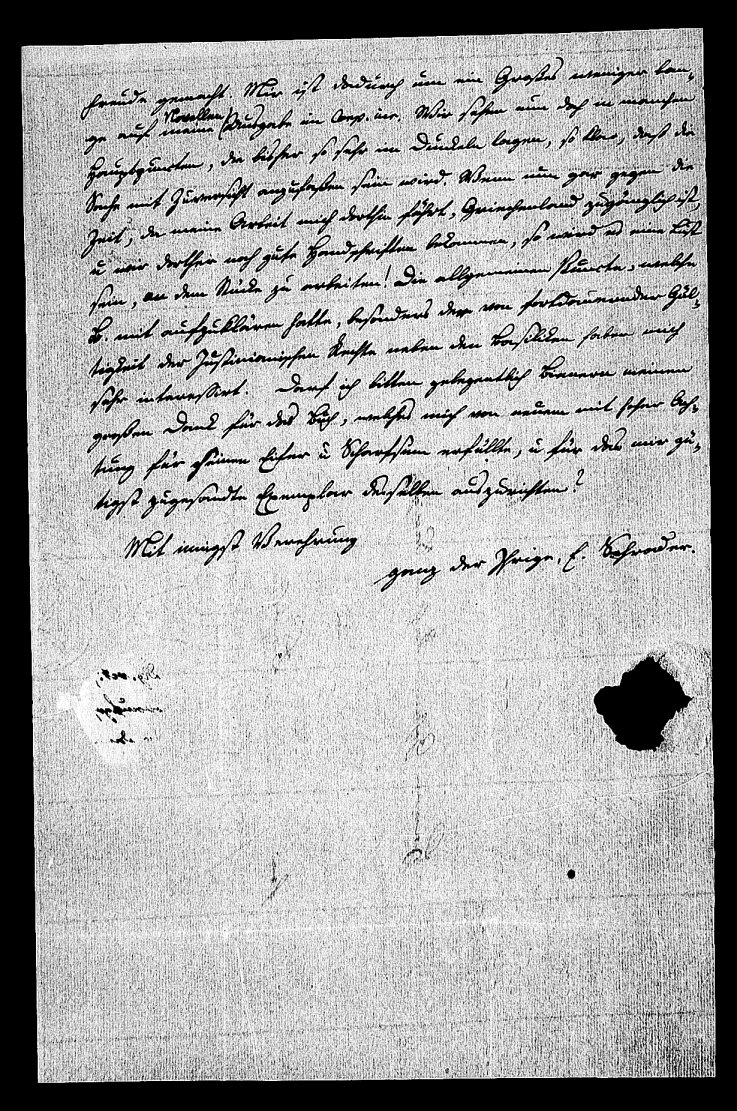 Freude gemacht. Mir ist dadurch um ein Großes weniger ban-
ge auf meine Novellen Ausgabe im Corp. iur. Wir sehen nun doch in manchen
Hauptpuncten, die bisher so sehr im Dunkeln lagen, so klar, daß die
Sache mit Zuversicht anzufaßen sein wird. Wenn nun gar gegen die
Zeit, da meine Arbeit mich dorthin führt, Griechenland zugänglich ist,
u wir dorther noch gute Handschriften bekommen, so wird es eine Lust
sein, an dem Stücke zu arbeiten! Die allgemeinen Puncte, welche
B. mit aufzuklären hatte, besonders der von fortdauernder Gül-
tigkeit der Justinianischen Rechte neben den Basiliken haben mich
sehr interessirt. Darf ich bitten gelegentlich Bienern meinen
großen Dank für das Buch, welches mich von neuem mit hoher Ach-
tung für seinen Eifer u Scharfsinn erfüllte, u für das mir gü-
tigst zugesandte Exemplar desselben auszurichten?
Mit innigst Verehrung
ganz der Ihrige, E. Schrader.